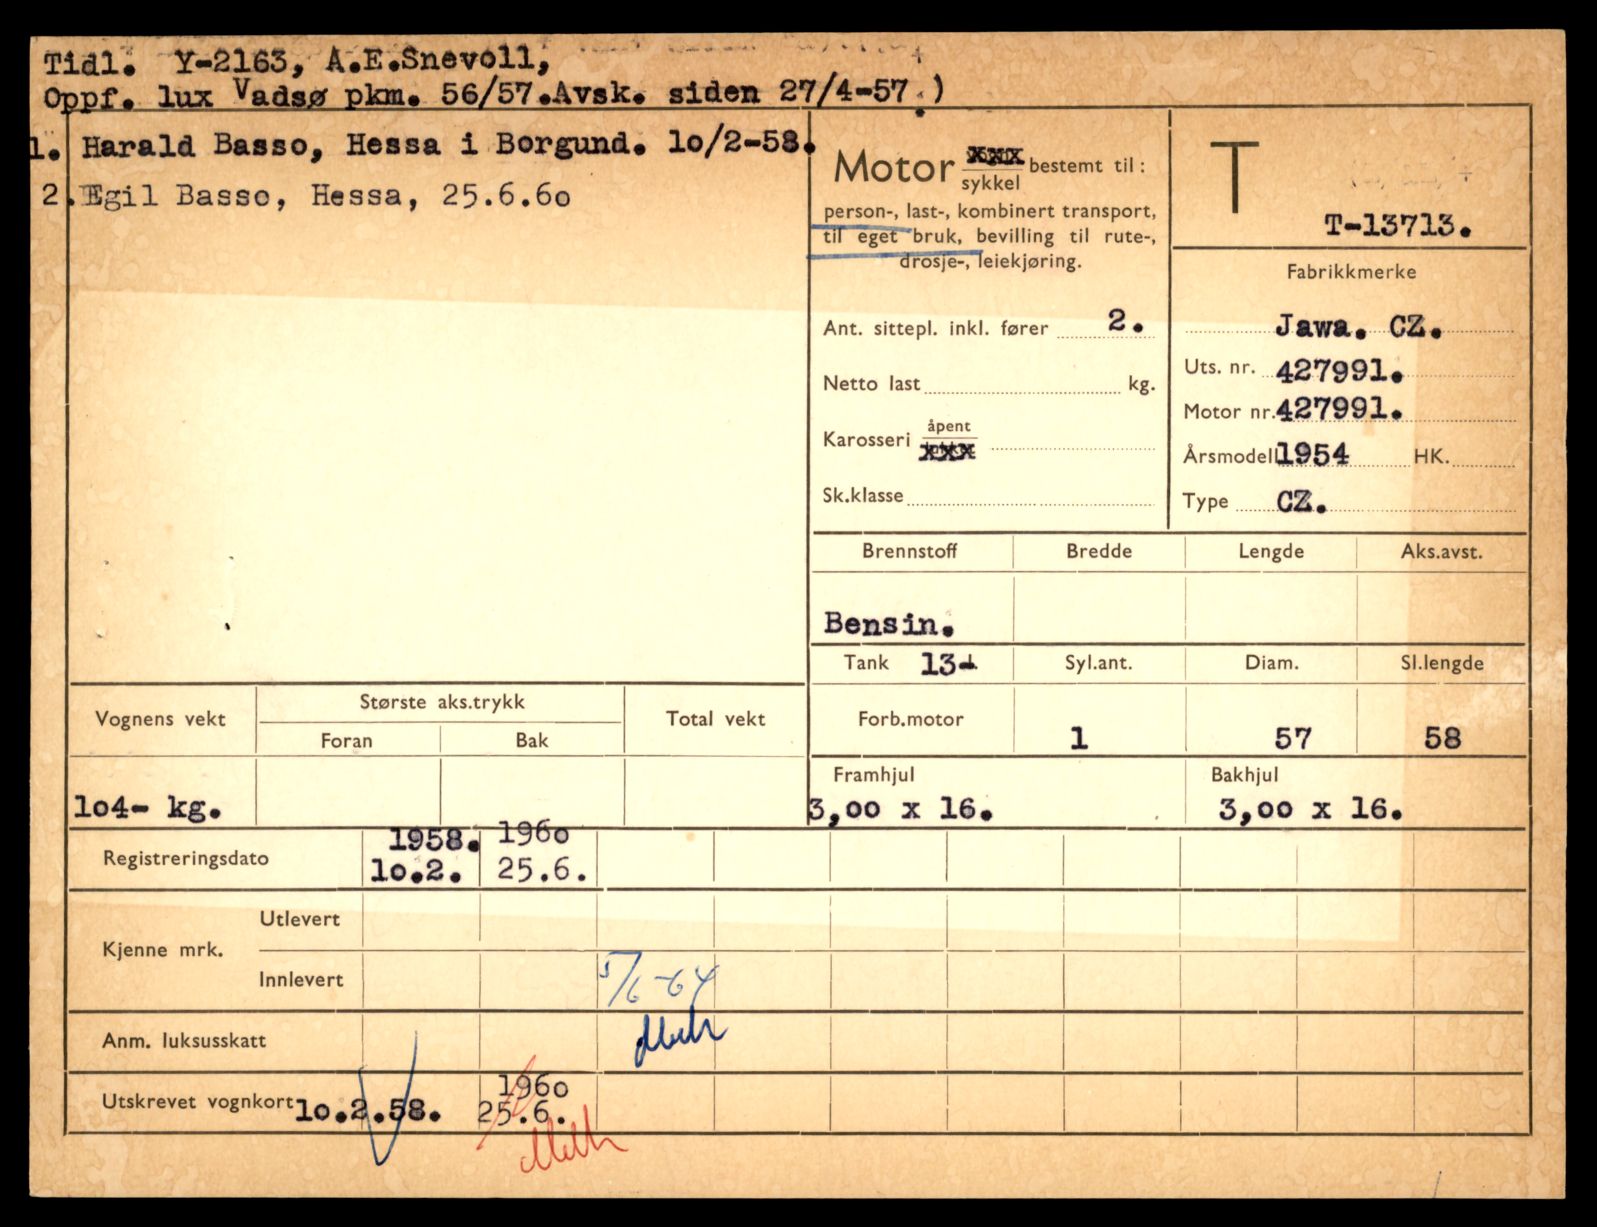 Tidl. Y-2163, A.E.Snevoll,
Oppf. lux Vadsø pkm. 56/57.Avsk. siden 27/4-57.)
1. Harald Basso, Hessa i Borgund. 10/2-58.
2. Egil Basso, Hessa, 25.6.60
Motor xxx
sykkel bestemt til:
person-, last-, kombinert transport,
til eget bruk, bevilling til rute-,
drosje-, leiekjøring.
T
T-13713.
Fabrikkmerke
Jawa. CZ.
Ant. sittepl. inkl. fører 2.
Uts. nr. 427991.
Netto last kg.
Motor nr. 427991.
Karosseri åpent
xxx
Årsmodell 1954 HK.
Sk.klasse
Type CZ.
Brennstoff Bredde Lengde Aks.avst.
Bensin.
Tank 13- l. Syl.ant. Diam. Sl.lengde
Forb.motor 1 57 58
Vognens vekt Største aks.trykk Total vekt
Foran Bak
Framhjul Bakhjul
104- kg. 3,00 x 16. 3,00 x 16.
Registreringsdato 1958. 1960
10.2. 25.6.
Kjenne mrk. Utlevert
Innlevert 5/6-64
Anm. luksusskatt
Utskrevet vognkort 10.2.58. 1960
25.6.